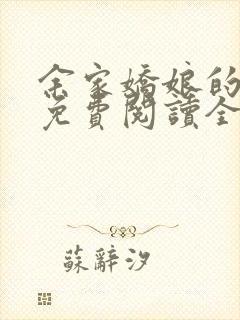 余家嬌娘的
免費閱讀全
蘇辭汐